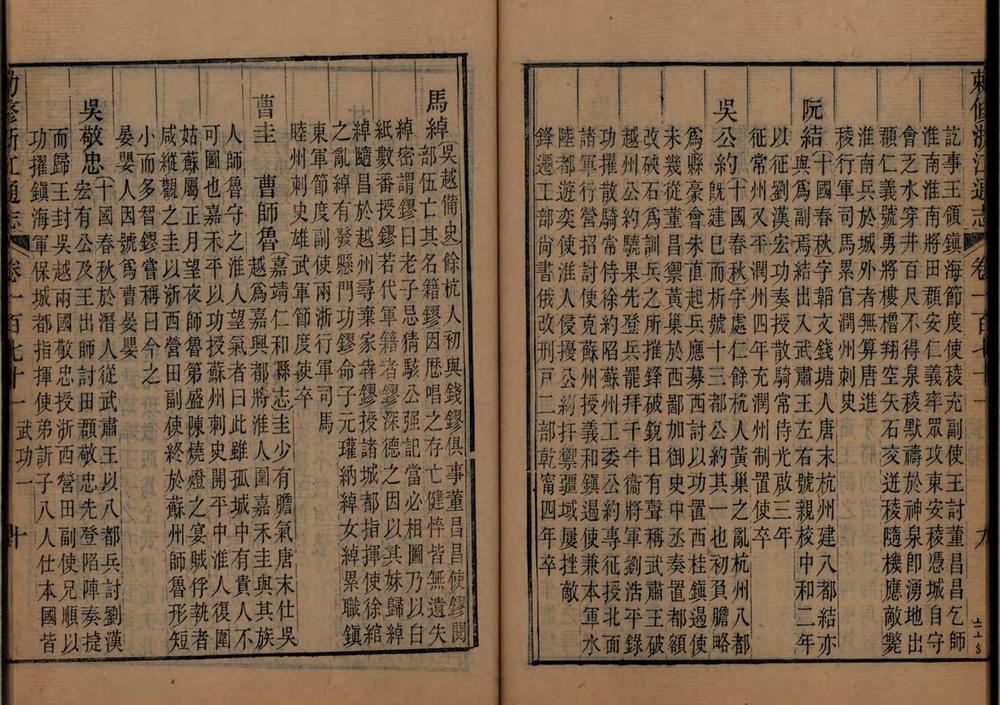 敕修浙江通志 卷一百七十一 九
訖事王領鎮海節度使稜充副使王討董昌昌乞師
淮南淮南將田頵安仁義率眾攻東安稜憑城自守
會乏水穿井百尺不得泉稜默禱於神泉卽湧地出
頵仁義號勇將樓櫓翔空矢石交迸稜隨機應敵斃
淮南兵於城外者無算唐進
稜行軍司馬累官潤州刺史
阮結 十國春秋字韜文錢塘人唐末杭州建八都結亦
與爲副焉結出入武肅王左右號親校中和二年
以征劉漢宏功奏授散騎常侍光啟三年
征常州又平潤州四年充潤州制置使卒
吳公約 十國春秋字處仁餘杭人黃巢之亂杭州八都
旣建已而析號十三都公約其一也初負膽略
爲縣豪會朱直起兵應募西討以功置西桂鎮遏使
未幾從董昌禦黃巢於西鄙加御史中丞奏置都額
改硤石爲訓兵之所摧鋒破銳日有聲稱武肅王破
越州公約驍果先登兵罷拜千牛衞將軍劉浩平錄
功擢散騎常侍徐約陷蘇州王委公約專征授北面
諸軍行營招討使克蘇州授義和鎮遏使兼本軍水
陸都遊奕使淮人侵擾公約扞禦疆域屢挫敵
鋒遷工部尚書俄改刑戸二部乾甯四年卒
馬綽 吳越備史餘杭人初與錢鏐俱事董昌昌使鏐閱
部伍亡其名籍鏐因歴唱之存亡健悴皆無遺失
綽密謂鏐曰老子忌猜駭公强記當必相圖乃以白
紙數番授鏐若代軍籍者鏐深德之因以其妹歸綽
綽隨昌於越州尋棄家奔鏐授諸城都指揮使徐綰
之亂綽有發懸門功鏐命子元瓘納綽女綽累職鎮
東軍節度副使兩浙行軍司馬
睦州刺史雄武軍節度使卒
曹圭 曹師魯 嘉靖仁和縣志圭少有膽氣唐末仕吳
越爲嘉興都將淮人圍嘉禾圭與其族
人師魯守之淮人望氣者曰此雖孤城中有貴人不
可圖也嘉禾平以功授蘇州刺史開平中淮人復圍
姑蘇屬正月望夜師魯第盛陳燒燈之宴賊俘執者
咸縱觀之圭以浙西營田副使終於蘇州師魯形短
小而多智鏐嘗稱曰今之
晏嬰人因號爲曹晏嬰
吳敬忠 十國春秋於潛人從武肅王以八都兵討劉漢
宏有公及王出師討田頵敬忠先登陷陣奏捷
而歸王封吳越兩國敬忠授浙西營田副使兄順以
功擢鎮海軍保城都指揮使弟訢子八人仕本國皆
勅修浙江通志 卷一百七十一 武功一 十